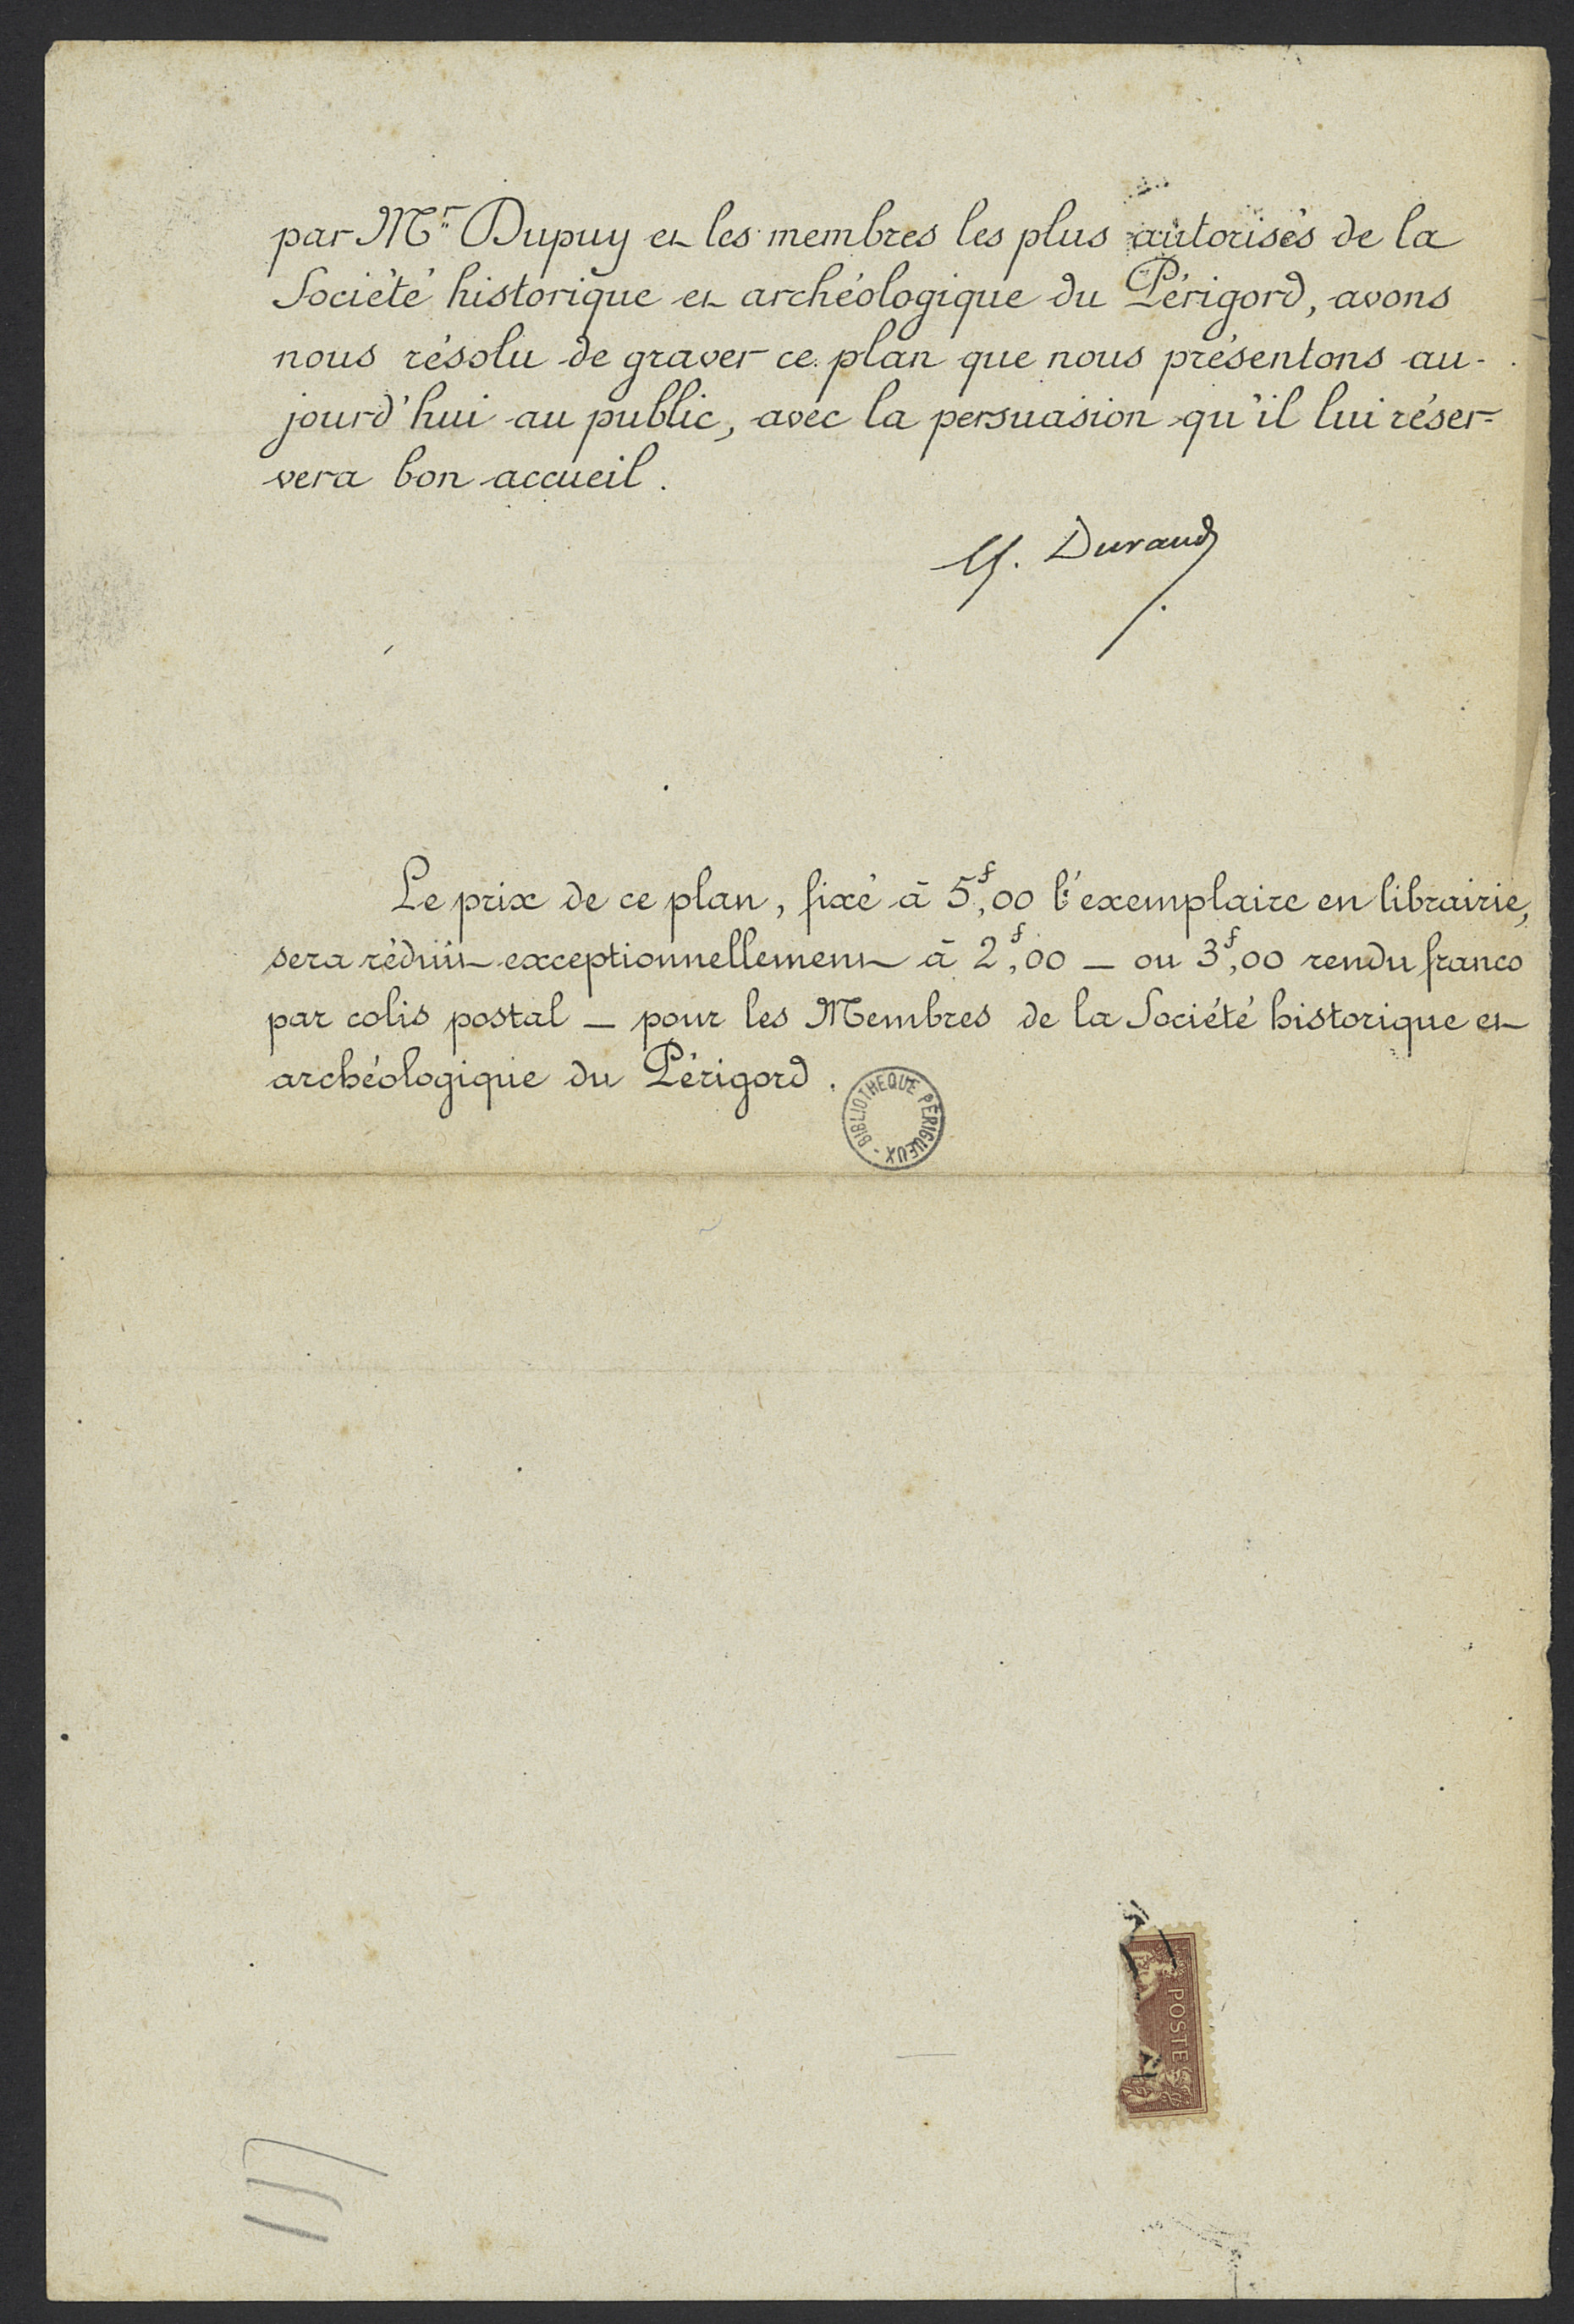 par Mr Dupuy et les membres les plus autorisés de la
Société historique et archéologique du Périgord, avons
nous résolu de graver ce plan que nous présentons au-
jourd'hui au public, avec la persuasion qu'il lui réser-
vera bon accueil.
Durand
Le prix de ce plan, fixé à 5f,00 l'exemplaire en librairie,
sera réduit exceptionnellement à 2f,00 — ou 3f,00 rendu franco
par colis postal — pour les Membres de la Société historique et
archéologique du Périgord.
BIBLIOTHEQUE PÉRIGUEUX
POSTES